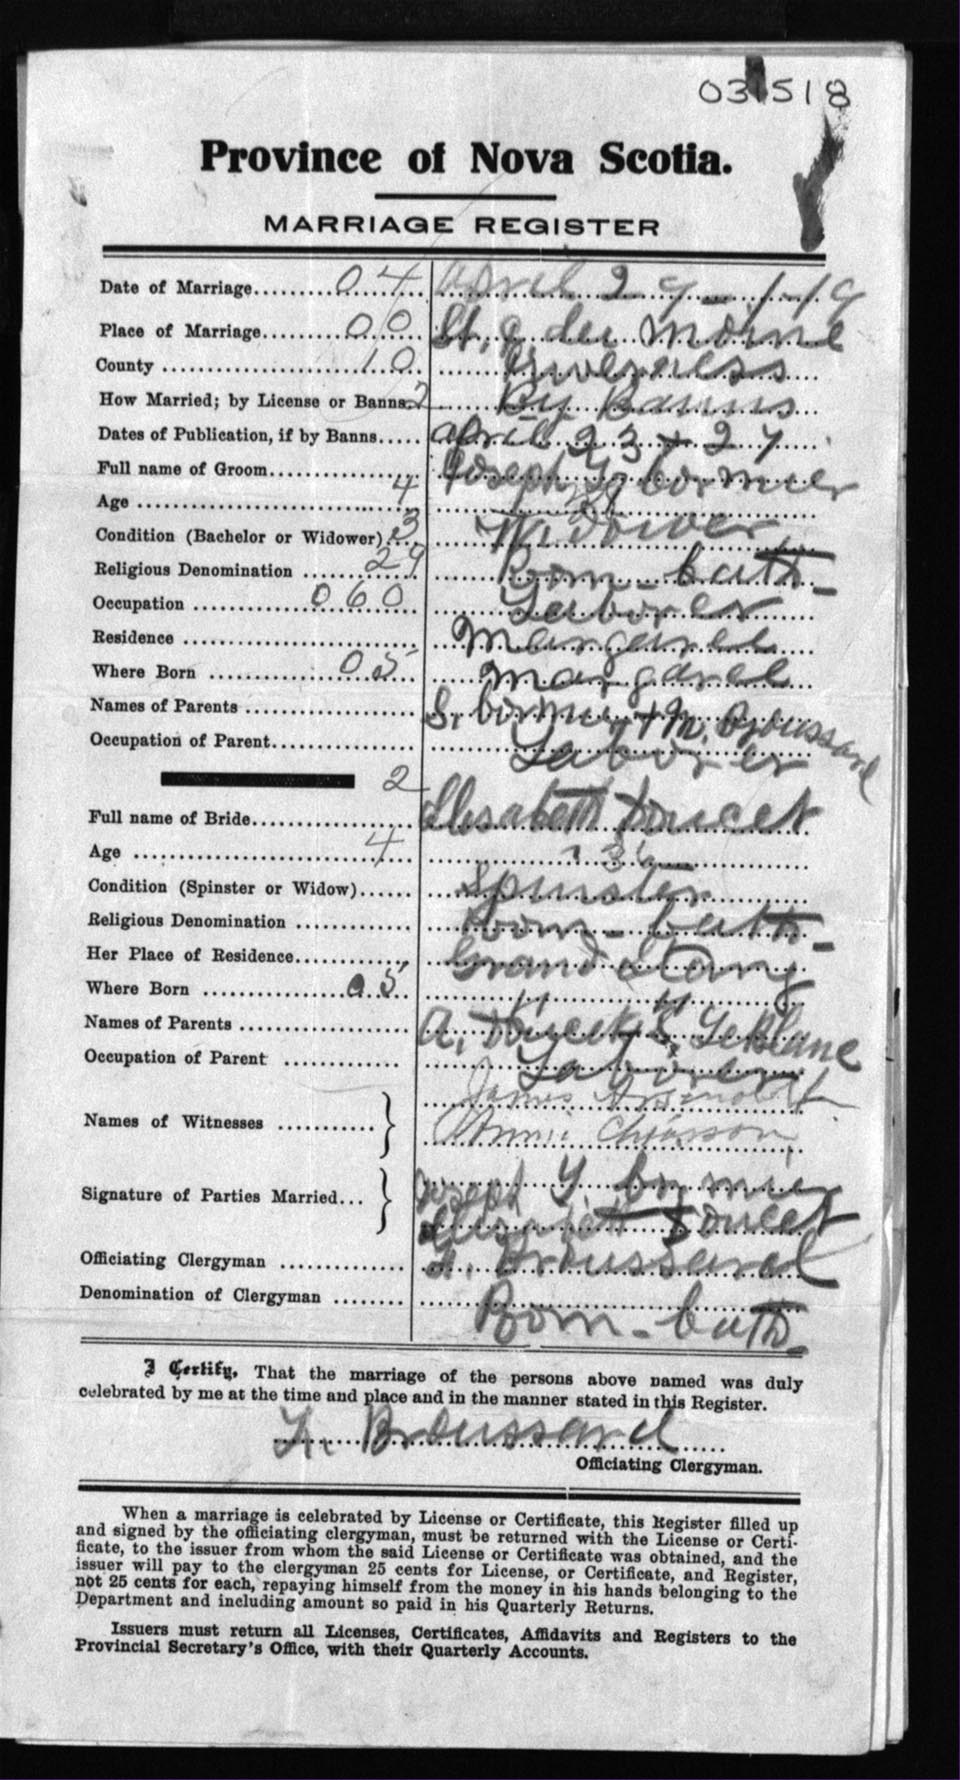 031518
Province of Nova Scotia.
MARRIAGE REGISTER
Date of Marriage 04 April 29-1-19
Place of Marriage 00 St. J. du Moine
County 10 Inverness
How Married; by License or Banns 2 By Banns
Dates of Publication, if by Banns April 23 + 27
Full name of Groom Joseph Y. Cormier
Age 4
Condition (Bachelor or Widower) 3 Widower
Religious Denomination 29 Rom-Cath-
Occupation 060 Laborer
Residence Margaree
Where Born 05 Margaree
Names of Parents S. Cormier + M. Broussard
Occupation of Parent Laborer
2
Full name of Bride Elisabeth Doucet
Age 4 36
Condition (Spinster or Widow) Spinster
Religious Denomination Rom-Cath-
Her Place of Residence Grand Etang
Where Born 05 " "
Names of Parents A. Doucet & LeBlanc
Occupation of Parent Laborer
Names of Witnesses } James Arsenault
Annie Chiasson
Signature of Parties Married } Joseph Y. Cormier
Elisabeth Doucet
Officiating Clergyman Broussard
Denomination of Clergyman Rom-Cath-
I Certify, That the marriage of the persons above named was duly
celebrated by me at the time and place and in the manner stated in this Register.
Broussard
Officiating Clergyman.
When a marriage is celebrated by License or Certificate, this Register filled up
and signed by the officiating clergyman, must be returned with the License or Certi-
ficate, to the issuer from whom the said License or Certificate was obtained, and the
issuer will pay to the clergyman 25 cents for License, or Certificate, and Register,
not 25 cents for each, repaying himself from the money in his hands belonging to the
Department and including amount so paid in his Quarterly Returns.
Issuers must return all Licenses, Certificates, Affidavits and Registers to the
Provincial Secretary's Office, with their Quarterly Accounts.